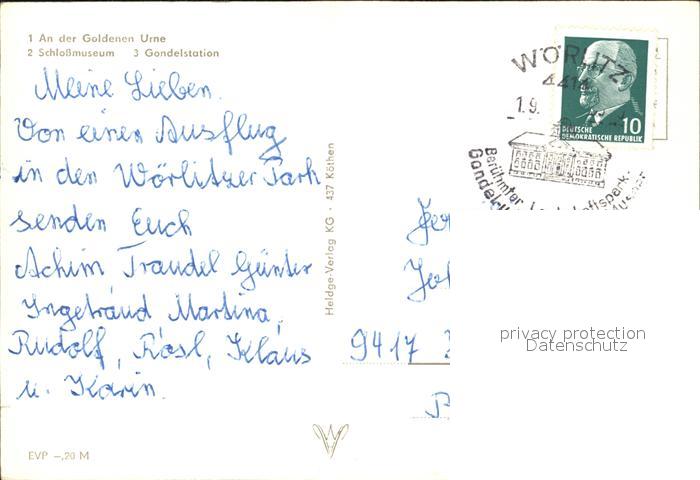 1 An der Goldenen Urne
2 Schloßmuseum 3 Gondelstation
Meine Lieben.
Von einen Ausflug
in den Wörlitzer Park
senden Euch
Achim Traudel Günter
Ingetraud Martina,
Rudolf, Rosl, Klaus
u. Karin.
EVP –,20 M
Heldge-Verlag KG · 437 Köthen
WÖRLITZ
4414
1.9.
Berühmter
DEUTSCHE
DEMOKRATISCHE REPUBLIK
10
9417
privacy protection
Datenschutz